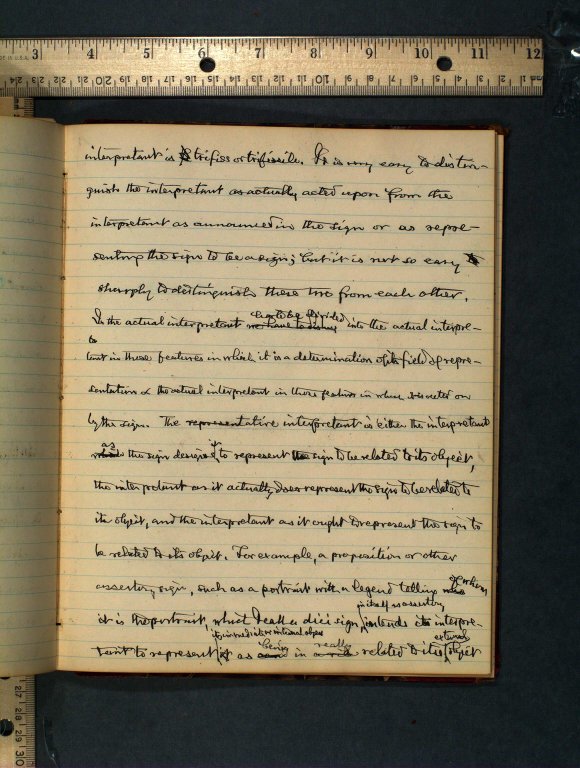 3 4 5 6 7 8 9 10 11 12
interpretant is trifiss or trifissile. It is very easy to distin-
guish the interpretant as actually acted upon from the
interpretant as announced in the sign or as repre-
senting the sign to be a sign; but it is not so easy
sharply to distinguish these two from each other.
has to be divided
Is the actual interpretant we have to into the actual interpre-
to
tant in those features in which it is a determination of its field of repre-
sentation & the actual interpretant in those features in which it is acted on
by the sign. The representative interpretant is either the interpretant
as it
the sign designs to represent the sign to be related to its object,
the interpretant as it actually does represent the sign to be related to
its object, and the interpretant as it ought to represent the sign to
be related to its object. For example, a proposition or other
of whom
assertory sign, such as a portrait with a legend telling
in itself as assertory
it is the portrait, what I call a dicisign, intends its interpre-
its immediate or internal object
being really external
tant to represent it as in related to its object